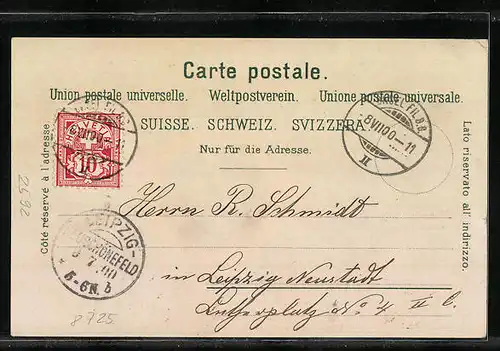 Carte postale.
Union postale universelle. Weltpostverein. Unione postale universale.
SUISSE. SCHWEIZ. SVIZZERA.
Nur für die Adresse.
Côté réservé à l'adresse
Lato riservato all' indirizzo.
HELVETIA
10
BASEL FIL.B.B.
8 VII 00 - 11
II
Herrn R. Schmidt
in Leipzig Neustadt
Lutherplatz No. 4 II
LEIPZIG-
SCHÖNEFELD
7.00
5-6N. b
2692
8725